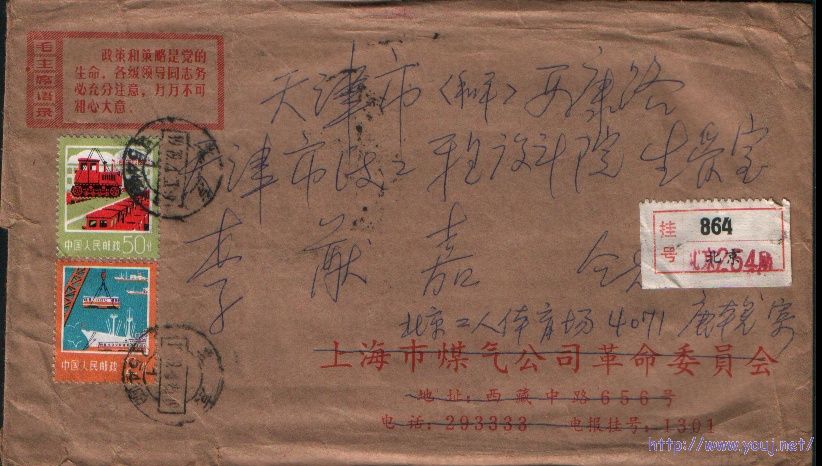 毛主席语录
政策和策略是党的
生命，各级领导同志务
必充分注意，万万不可
粗心大意。
天津市（和平）西康路
天津市政工程设计院 生资室
李 献 嘉
中国人民邮政 50分
中国人民邮政
挂号
864
北京
北京254局
北京工人体育场4071
上海市煤气公司革命委員会
地址：西藏中路656号
电话：293333 电报挂号：1301
http://www.youj.net/